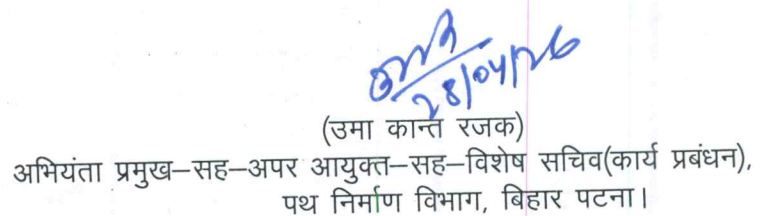 28/04/26
(उमा कान्त रजक)
अभियंता प्रमुख–सह–अपर आयुक्त–सह–विशेष सचिव(कार्य प्रबंधन),
पथ निर्माण विभाग, बिहार पटना।